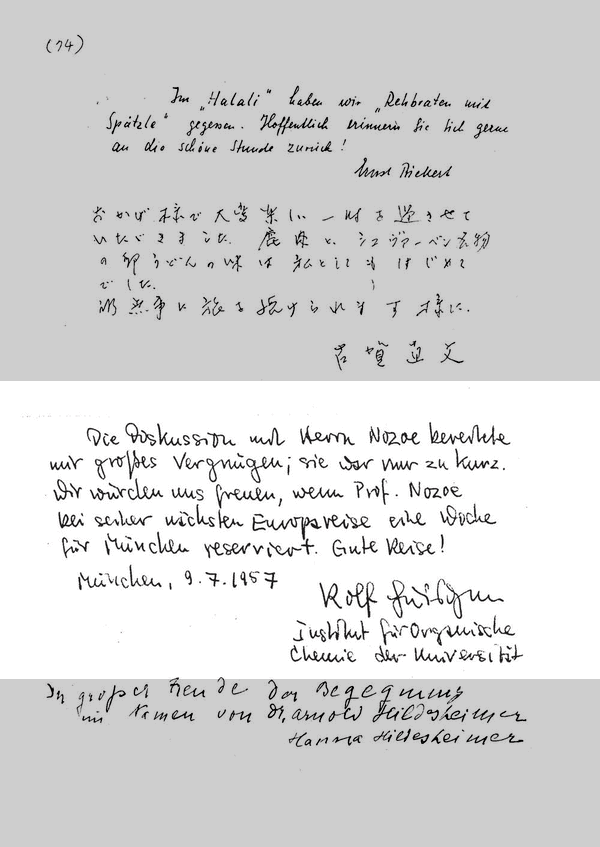 (74)
Im „Halali" haben wir „Rehbraten mit
Spätzle" gegessen. Hoffentlich erinnern Sie sich gerne
an die schöne Stunde zurück!
Ernst
おかげ様で大変楽しい一時を過させて
いただきました。鹿肉と、シュヴァーベン名物
の卵うどんの味は私としてもはじめて
でした。
御無事に旅を続けられます様に。
直文
Die Diskussion mit Herrn Nozoe bereitete
mir großes Vergnügen; sie war nur zu kurz.
Wir würden uns freuen, wenn Prof. Nozoe
bei seiner nächsten Europareise eine Woche
für München reserviert. Gute Reise!
München, 9.7.1957
Rolf Huisgen
Institut für Organische
Chemie der Universität
In großer Freude der Begegnung
im Namen von Dr. Arnold Hildesheimer
Hanna Hildesheimer